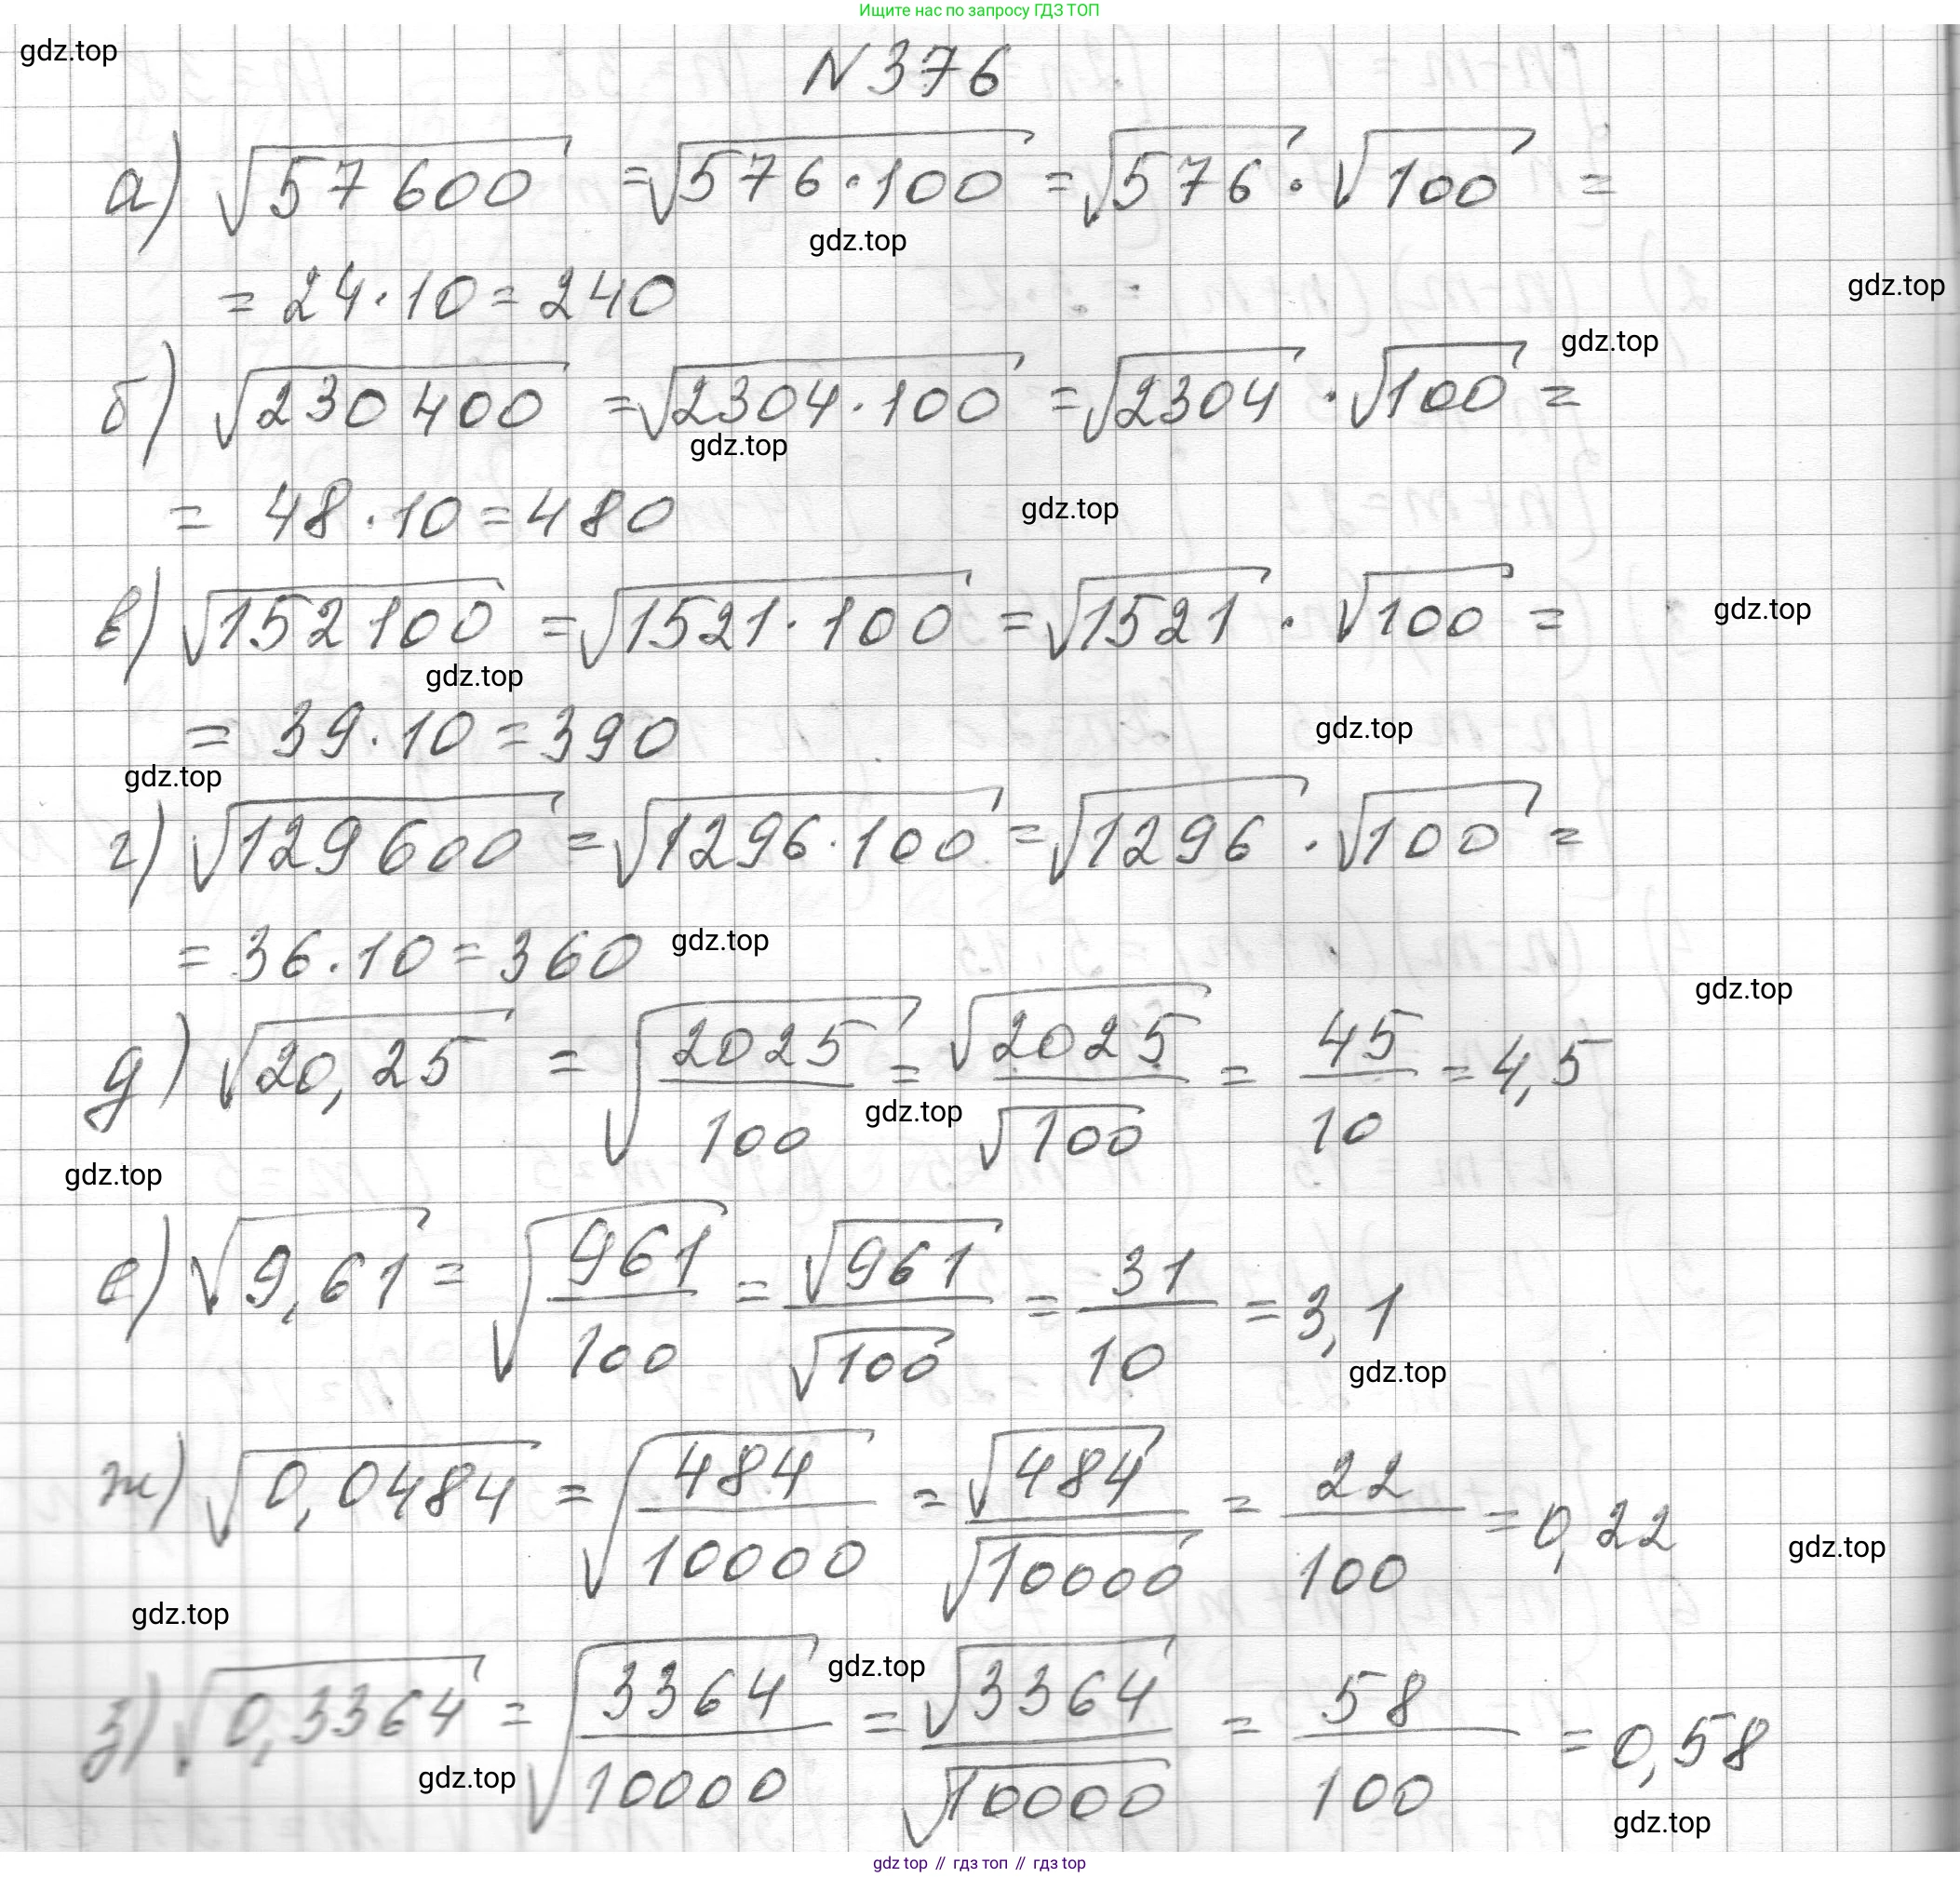 Ищите нас по запросу ГДЗ ТОП
gdz.top
N376
а) √57600 = √576·100 = √576 · √100 =
gdz.top
= 24·10 = 240
gdz.top
gdz.top
б) √230400 = √2304·100 = √2304 · √100 =
gdz.top
= 48·10 = 480
gdz.top
в) √152100 = √1521·100 = √1521 · √100 =
gdz.top
gdz.top
= 39·10 = 390
gdz.top
gdz.top
г) √129600 = √1296·100 = √1296 · √100 =
= 36·10 = 360
gdz.top
gdz.top
д) √20,25 = √(2025/100) = √2025/√100 = 45/10 = 4,5
gdz.top
gdz.top
е) √9,61 = √(961/100) = √961/√100 = 31/10 = 3,1
gdz.top
ж) √0,0484 = √(484/10000) = √484/√10000 = 22/100 = 0,22
gdz.top
gdz.top
gdz.top
з) √0,3364 = √(3364/10000) = √3364/√10000 = 58/100 = 0,58
gdz.top
gdz.top
gdz top // гдз топ // гдз top